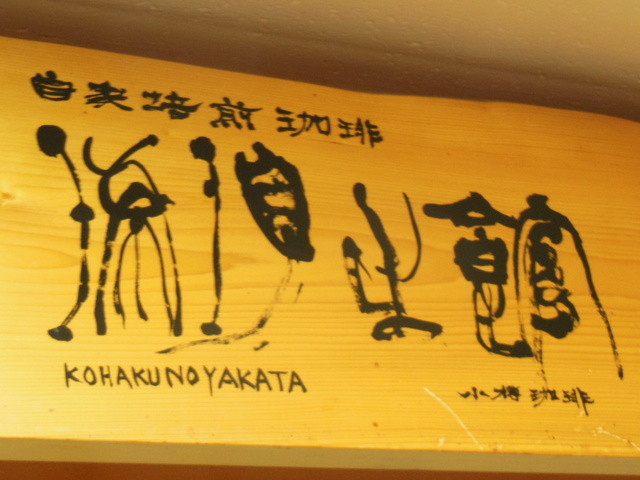 自家焙煎珈琲
琥珀之館
KOHAKUNOYAKATA
小樽珈琲